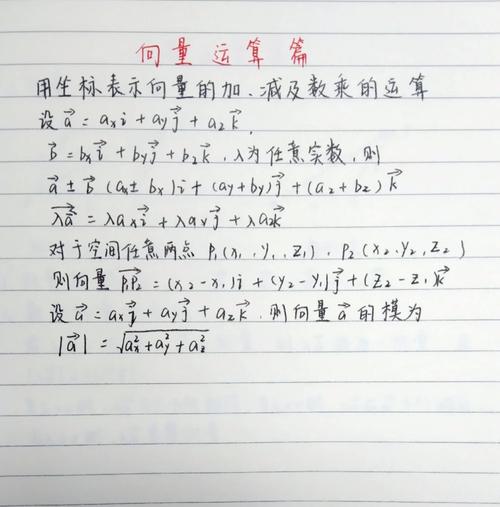 向量运算篇
用坐标表示向量的加、减及数乘的运算
设 a⃗ = axi + ayj⃗ + azk⃗,
b⃗ = bxi⃗ + byj⃗ + bzk⃗, λ为任意实数, 则
a⃗ ± b⃗ (ax ± bx)i + (ay + by)j⃗ + (az + bz)k⃗
λa⃗ = λaxi⃗ + λayj⃗ + λazk⃗
对于空间任意两点 P₁(x₁, y₁, z₁), P₂(x₂, y₂, z₂)
则向量 P₁P₂⃗ = (x₂ - x₁)i + (y₂ - y₁)j⃗ + (z₂ - z₁k⃗
设 a⃗ = axj⃗ + ayj⃗ + azk⃗, 则向量 a⃗ 的模为
|a⃗| = √(ax² + ay² + az²)